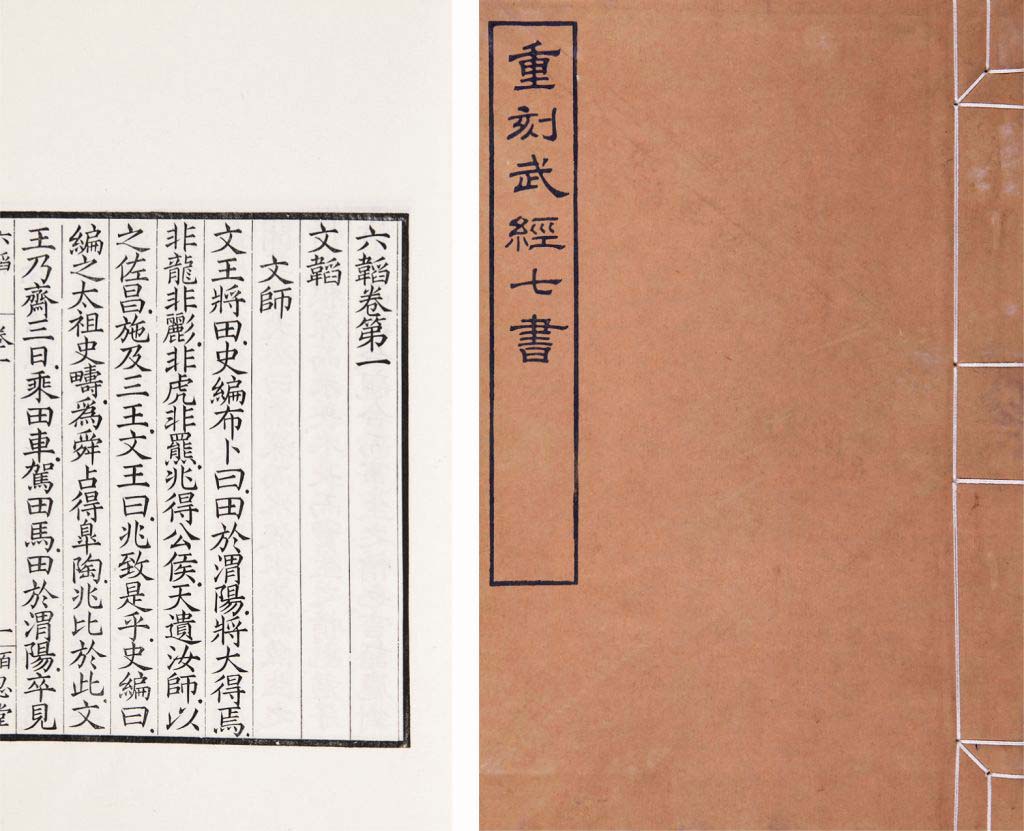 重刻武經七書
六韜卷第一
文韜
文師
文王將田史編布卜曰田於渭陽將大得焉
非龍非彲非虎非羆兆得公侯天遺汝師以
之佐昌施及三王文王曰兆致是乎史編曰
編之太祖史疇爲舜占得皐陶兆比於此文
王乃齋三日乘田車駕田馬田於渭陽卒見
六韜
卷一
一